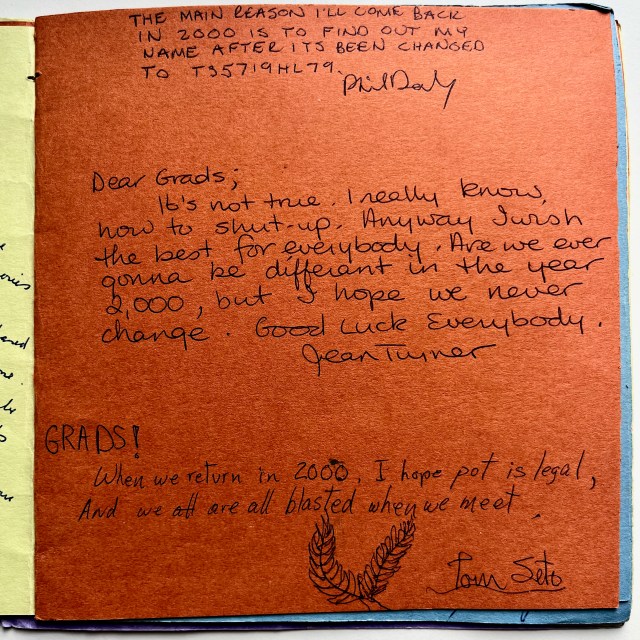 THE MAIN REASON I'LL COME BACK
IN 2000 IS TO FIND OUT MY
NAME AFTER ITS BEEN CHANGED
TO T35719HL79.
Phil Daly
Dear Grads;
It's not true. I really know
how to shut-up. Anyway I wish
the best for everybody. Are we ever
gonna be different in the year
2,000, but I hope we never
change. Good Luck Everybody.
Jean Turner
GRADS!
When we return in 2000, I hope pot is legal,
And we all are all blasted when we meet.
Tom Seto